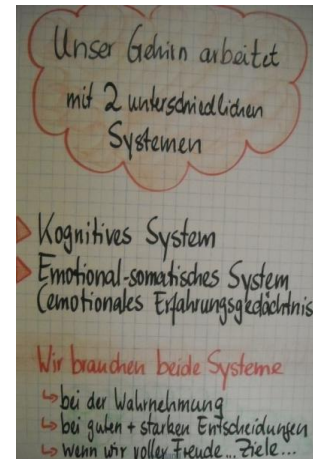 Unser Gehirn arbeitet
mit 2 unterschiedlichen
Systemen
Kognitives System
Emotional-somatisches System
(emotionales Erfahrungsgedächtnis
Wir brauchen beide Systeme
↳ bei der Wahrnehmung
↳ bei guten + starken Entscheidungen
↳ wenn wir voller Freude... Ziele...